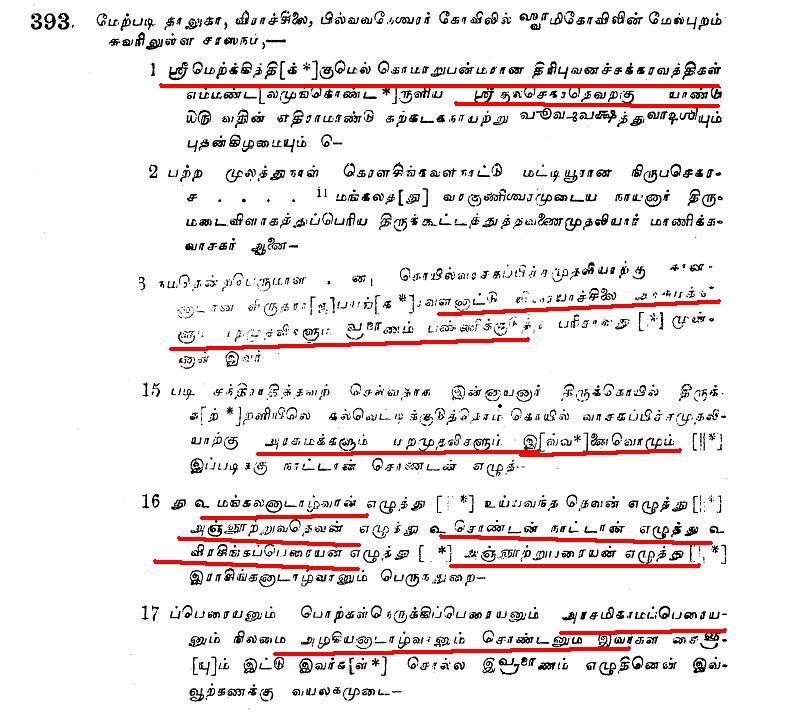 393. மேற்படி தாலுகா, விராச்சிலை, பில்வவநேஸ்வரர் கோவிலில் ஸ்வாமிகோவிலின் மேல்புறம்
சுவரிலுள்ள சாஸநம்,—
1 ஸ்ரீமெற்க்கித்தி[க்*]குமெல் கொமாறுபன்மரான திரிபுவனச்சக்கரவத்திகள்
எம்மண்ட[லமுங்கொண்ட*]ருளிய ஸ்ரீகுலசெகரதெவற்கு யாண்டு
வதின் எதிராமாண்டு கற்கடகநாயற்று
புதன்கிழமையும் பெ—
2 பற்ற மூலத்துநாள் கெரளசிங்கவளநாட்டு மட்டியூரான நிருபசெகர-
ச . . . . 11 மங்கலத்[து] வாகுணிஸ்வரமுடைய நாயனார் திரு-
மடைவிளாகத்துப்பெரிய திருக்கூட்டத்துத்தவணைமுதலியார் மாணிக்க-
வாசகர் ஆணை—
3 நமதென்றபெருமாள . ன கொயில்வாசகப்பிச்சமுதலியாற்கு கான-
விராயாச்சிலை அரசமக்க-
ளும் பறமுதலிகளும் ப்ரமாணம் பண்ணிக்குடுத்த பரிசாவது [|*] முன்-
னாள் இவர்
15 படி சந்திராதித்தவற் செல்வதாக இன்னாயனார் திருக்கொயில் திருக்-
க[ற்*]றளியிலெ கல்வெட்டிக்குடுத்தொம் கொயில் வாசகப்பிச்சமுதலி-
யாற்கு அரசமக்களும் பறமுதலிகளும் இ[வ்வ*]னைவொமும் [||*]
இப்படிக்கு நாட்டான் சொண்டன் எழுத்-
16 து உ மங்கலனாடாழ்வான் எழுத்து [|*] உய்யவந்த தெவன் எழுத்து[|*]
அஞ்ஞூற்றுவதெவன் எழுத்து உ சொண்டன் நாட்டான் எழுத்து உ
விரசிங்கப்பெரையன் எழுத்து [|*] அஞ்ஞூற்றுபரையன் எழுத்து[|*]
இராசிங்கனாடாழ்வானும் பெருந்துறை—
17 ப்பெரையனும் பொற்கள்நெருக்கிப்பெரையனும் அரசமிகாமப்பெரைய-
னும் நிலமை அழகியனாடாழ்வானும் சொண்டனும் இவர்கள் கைஞு-
[யு]ம் இட்டு இவர்க[ள்*] சொல்ல இப்ரமாணம் எழுதினென் இவ்-
வூற்கணக்கு வயலகமுடை—